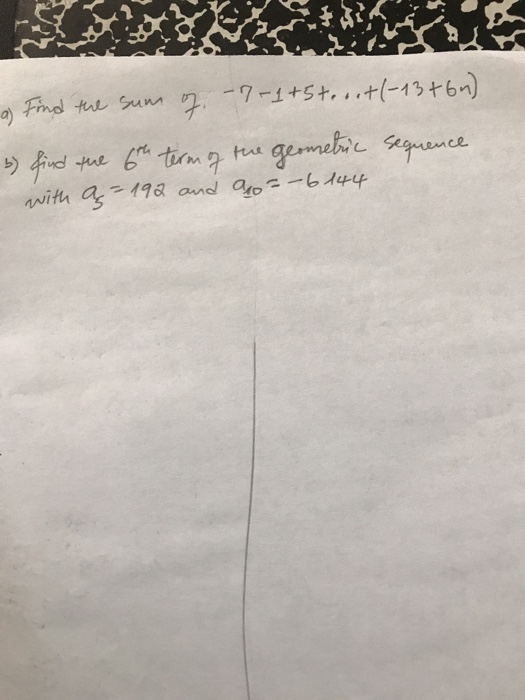 a) Find the sum of. -7-1+5+...+(-13+6n)
b) find the 6th term of the geometric sequence
with a5 = 192 and a10 = -6144